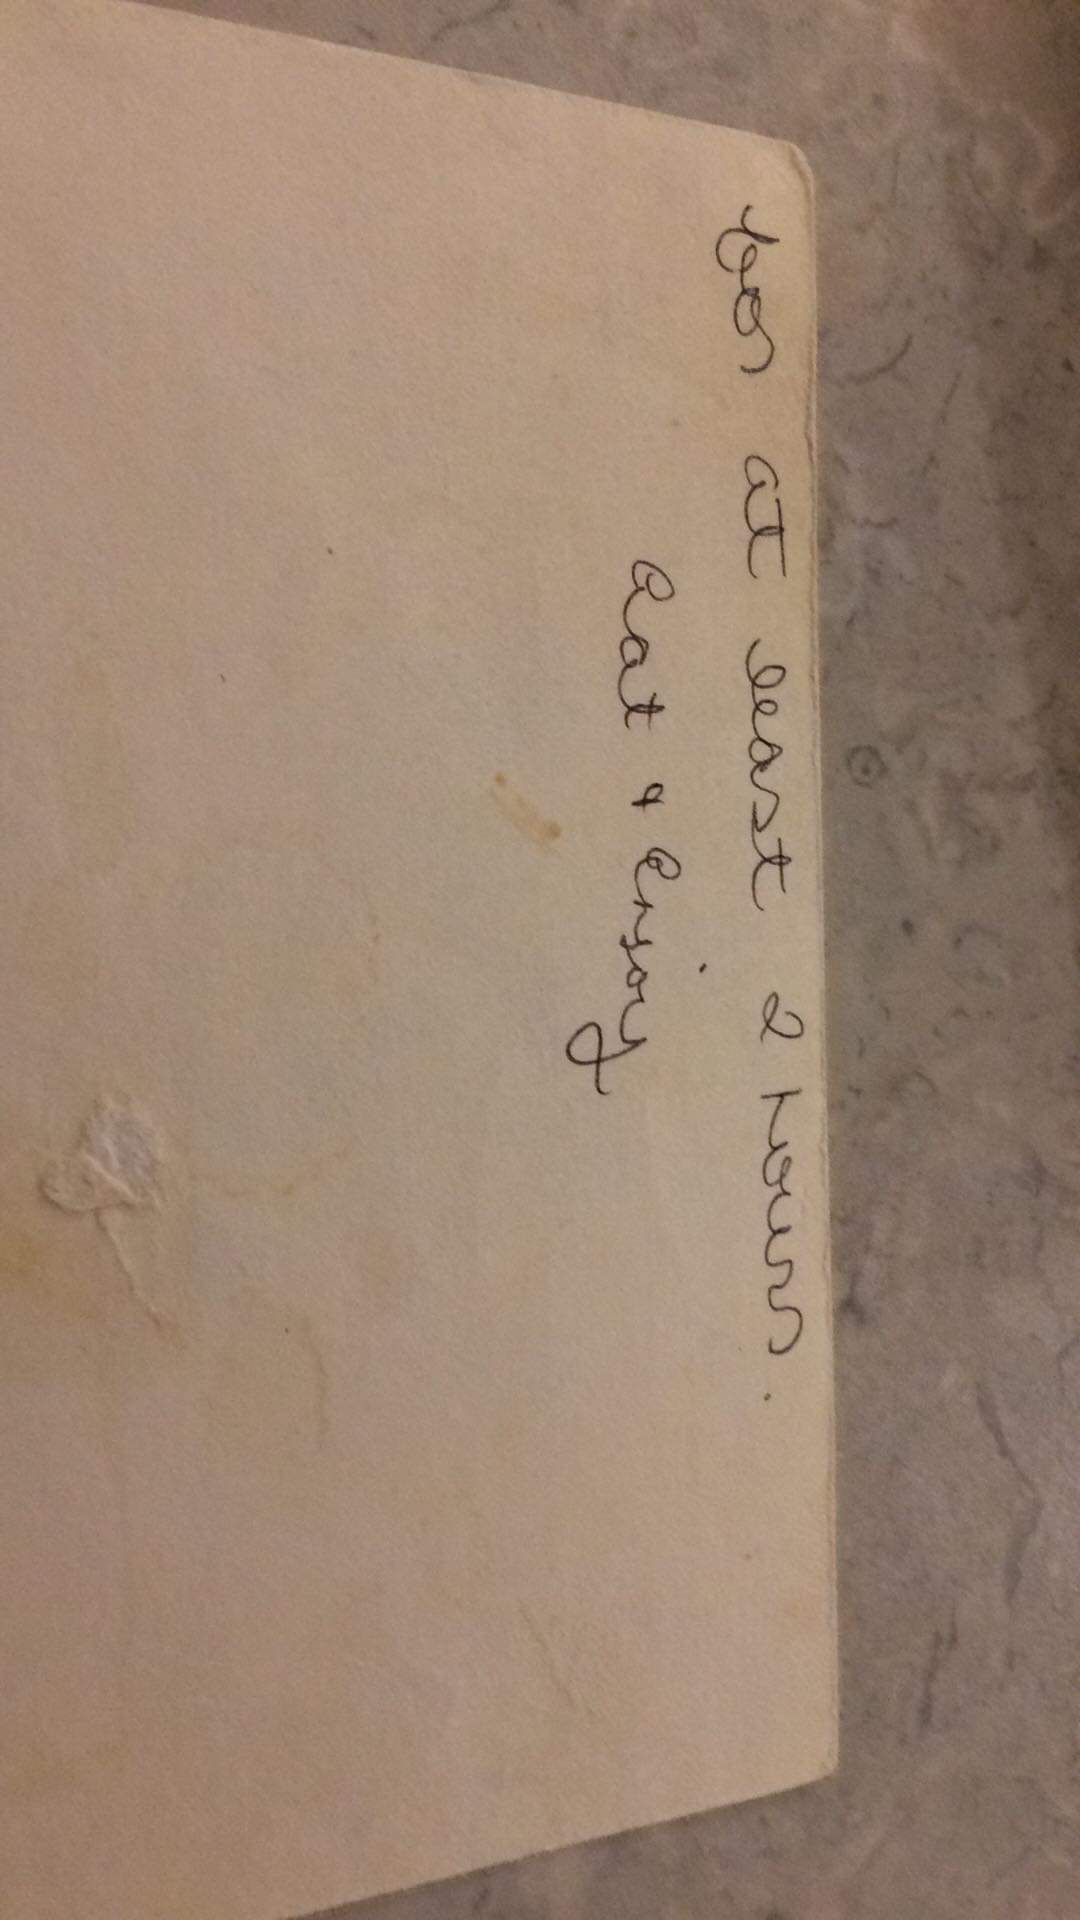 for at least 2 hours.
eat & enjoy